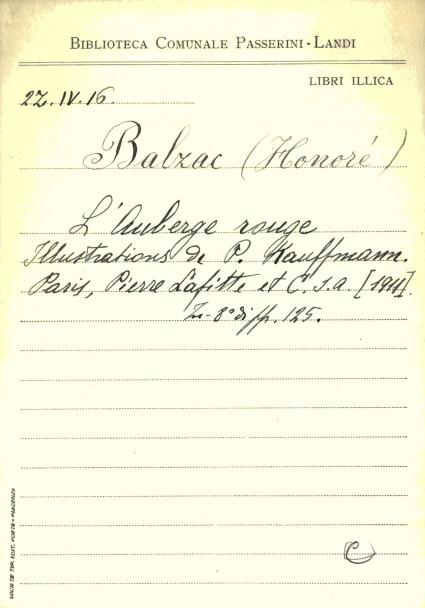 BIBLIOTECA COMUNALE PASSERINI-LANDI
LIBRI ILLICA
2Z.IV.16.
Balzac (Honoré)
L'Auberge rouge
Illustrations de P. Kauffmann.
Paris, Pierre Lafitte et C. s.a. [1911].
In-8° di pp. 125.
C